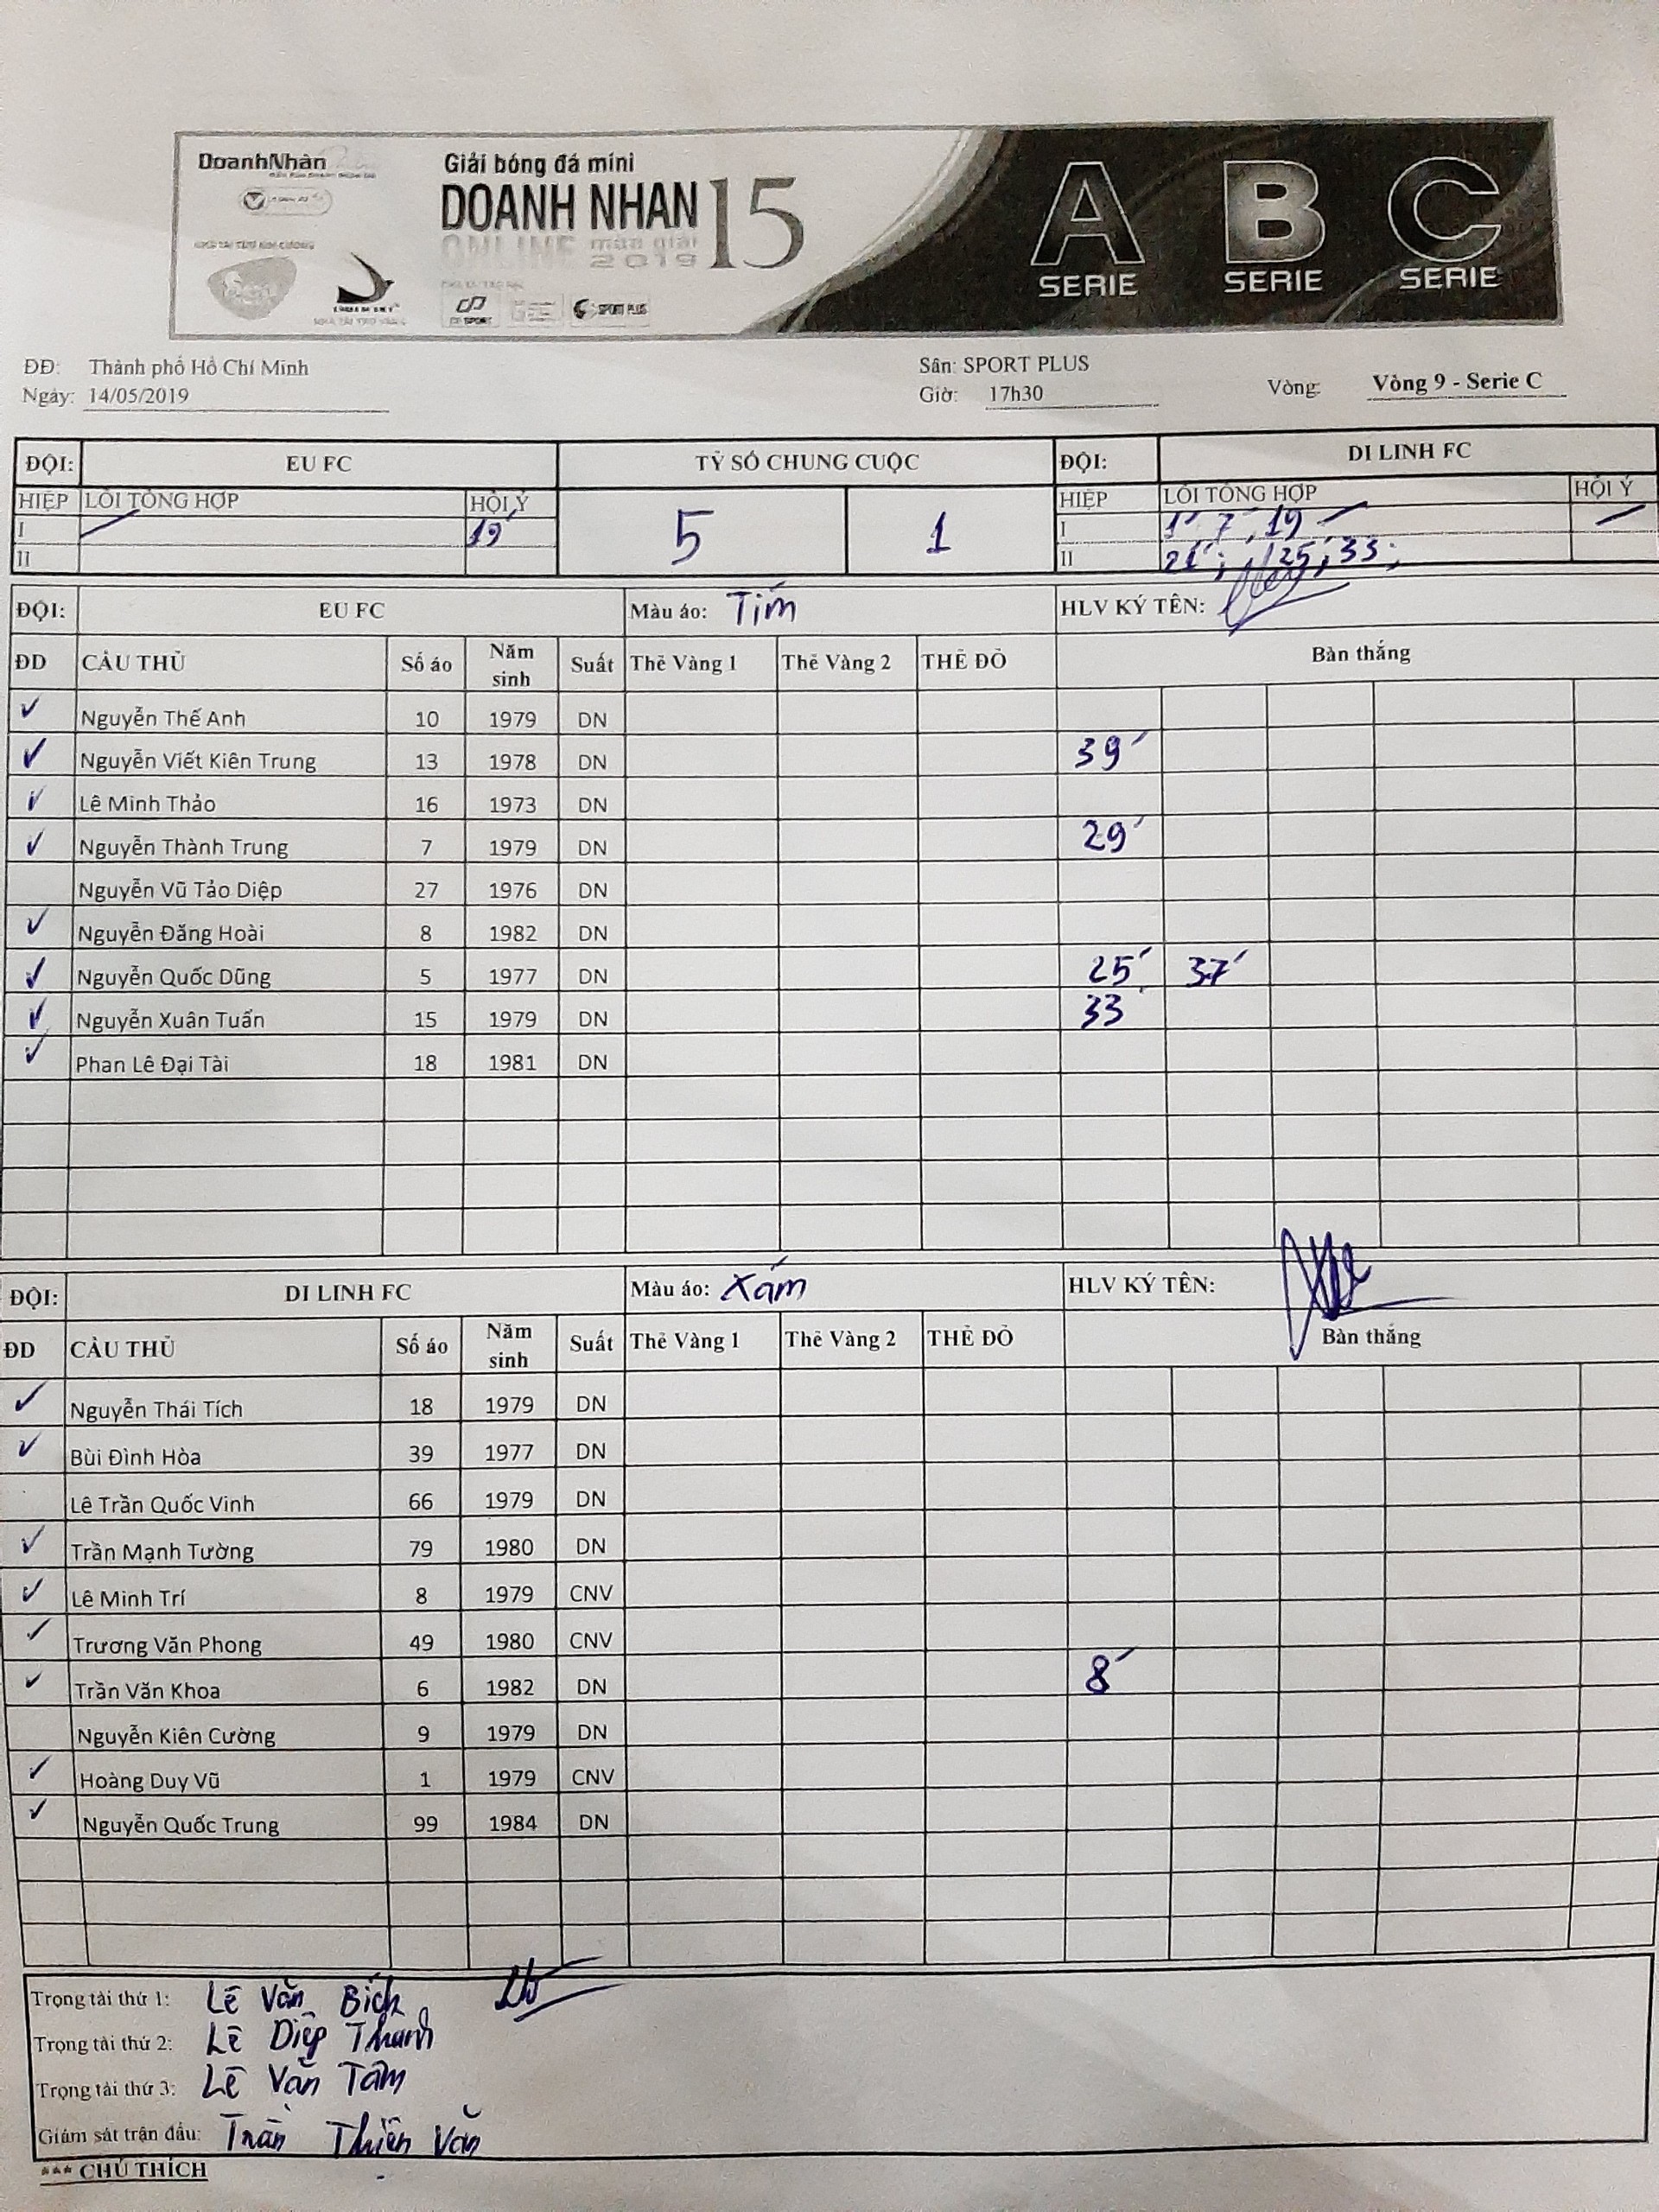 DoanhNhân
Giải bóng đá mini
DOANH NHAN 15
ONLINE mùa giải
2019
SPORT PLUS
A B C
SERIE SERIE SERIE
ĐĐ: Thành phố Hồ Chí Minh Sân: SPORT PLUS
Ngày: 14/05/2019 Giờ: 17h30 Vòng: Vòng 9 - Serie C
ĐỘI: EU FC TỶ SỐ CHUNG CUỘC ĐỘI: DI LINH FC
HIỆP LỖI TỔNG HỢP HỘI Ý 5 1 HIỆP LỖI TỔNG HỢP HỘI Ý
I 19' I 1' 7', 19
II II 21'; 25'; 33';
ĐỘI: EU FC Màu áo: Tím HLV KÝ TÊN:
ĐD CẦU THỦ Số áo Năm sinh Suất Thẻ Vàng 1 Thẻ Vàng 2 THẺ ĐỎ Bàn thắng
✓ Nguyễn Thế Anh 10 1979 DN
✓ Nguyễn Viết Kiên Trung 13 1978 DN 39'
✓ Lê Minh Thảo 16 1973 DN
✓ Nguyễn Thành Trung 7 1979 DN 29'
Nguyễn Vũ Tảo Diệp 27 1976 DN
✓ Nguyễn Đăng Hoài 8 1982 DN
✓ Nguyễn Quốc Dũng 5 1977 DN 25' 37'
✓ Nguyễn Xuân Tuấn 15 1979 DN 33'
✓ Phan Lê Đại Tài 18 1981 DN
ĐỘI: DI LINH FC Màu áo: Xám HLV KÝ TÊN:
ĐD CẦU THỦ Số áo Năm sinh Suất Thẻ Vàng 1 Thẻ Vàng 2 THẺ ĐỎ Bàn thắng
✓ Nguyễn Thái Tích 18 1979 DN
✓ Bùi Đình Hòa 39 1977 DN
Lê Trần Quốc Vinh 66 1979 DN
✓ Trần Mạnh Tường 79 1980 DN
✓ Lê Minh Trí 8 1979 CNV
✓ Trương Văn Phong 49 1980 CNV
✓ Trần Văn Khoa 6 1982 DN 8'
Nguyễn Kiên Cường 9 1979 DN
✓ Hoàng Duy Vũ 1 1979 CNV
✓ Nguyễn Quốc Trung 99 1984 DN
Trọng tài thứ 1: Lê Văn Bích
Trọng tài thứ 2: Lê Diệp Thanh
Trọng tài thứ 3: Lê Văn Tâm
Giám sát trận đấu: Trần Thiện Văn
*** CHÚ THÍCH